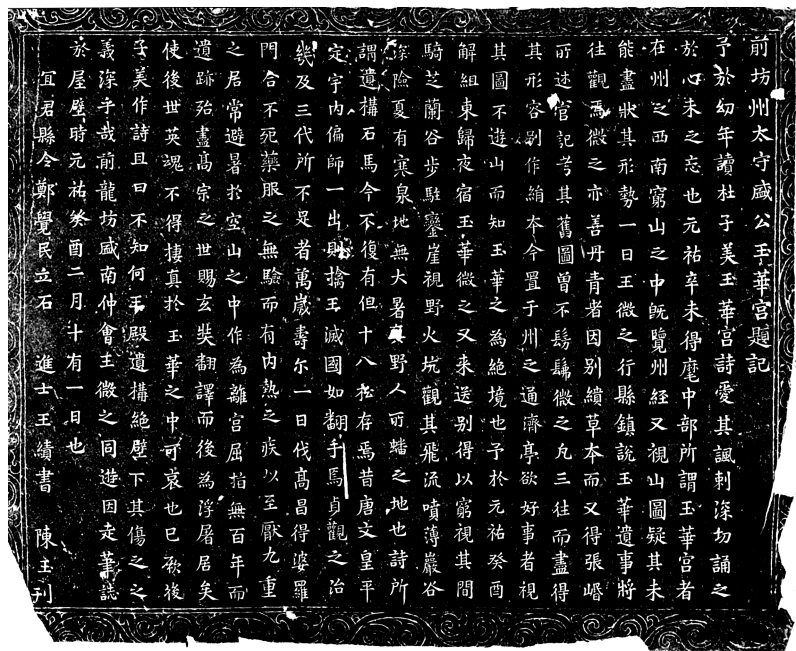 前坊州太守盛公玉華宮題記
予於幼年讀杜子美玉華宮詩愛其諷刺深切誦之
於心未之忘也元祐辛未得麾中部所謂玉華宮者
在州之西南窮山之中旣覽州經又視山圖疑其未
能盡狀其形勢一日王微之行縣鎮說玉華遺事將
往觀焉微之亦善丹青者因別繢草本而又得張崏
所述官記考其舊圖曾不髣髴微之凡三往而盡得
其形容別作綃本今置于州之通濟亭欲好事者視
其圖不遊山而知玉華之為絕境也予於元祐癸酉
解組東歸夜宿玉華微之又來送別得以窮視其間
騎芝蘭谷步駐鑾崖視野火坑觀其飛流噴薄巖谷
深險夏有寒泉地無大暑真野人所蟠之地也詩所
謂遺構石馬今不復有但十八松存焉昔唐文皇平
定宇內偏師一出則擒王滅國如翻手焉貞觀之治
幾及三代所不足者萬歲壽尔一日伐高昌得婆羅
門合不死藥服之無驗而有內熱之疾以至厭九重
之居常避暑於空山之中作為離宮屈指無百年而
遺跡殆盡高宗之世賜玄奘翻譯而後為浮屠居矣
使後世英魂不得棲真於玉華之中可哀也已厥後
子美作詩且曰不知何王殿遺構絕壁下其傷之之
義深乎哉前龍坊盛南仲會王微之同遊因走筆誌
於屋壁時元祐癸酉二月十有一日也
宜君縣令鄭覺民立石 進士王績書 陳玉刊